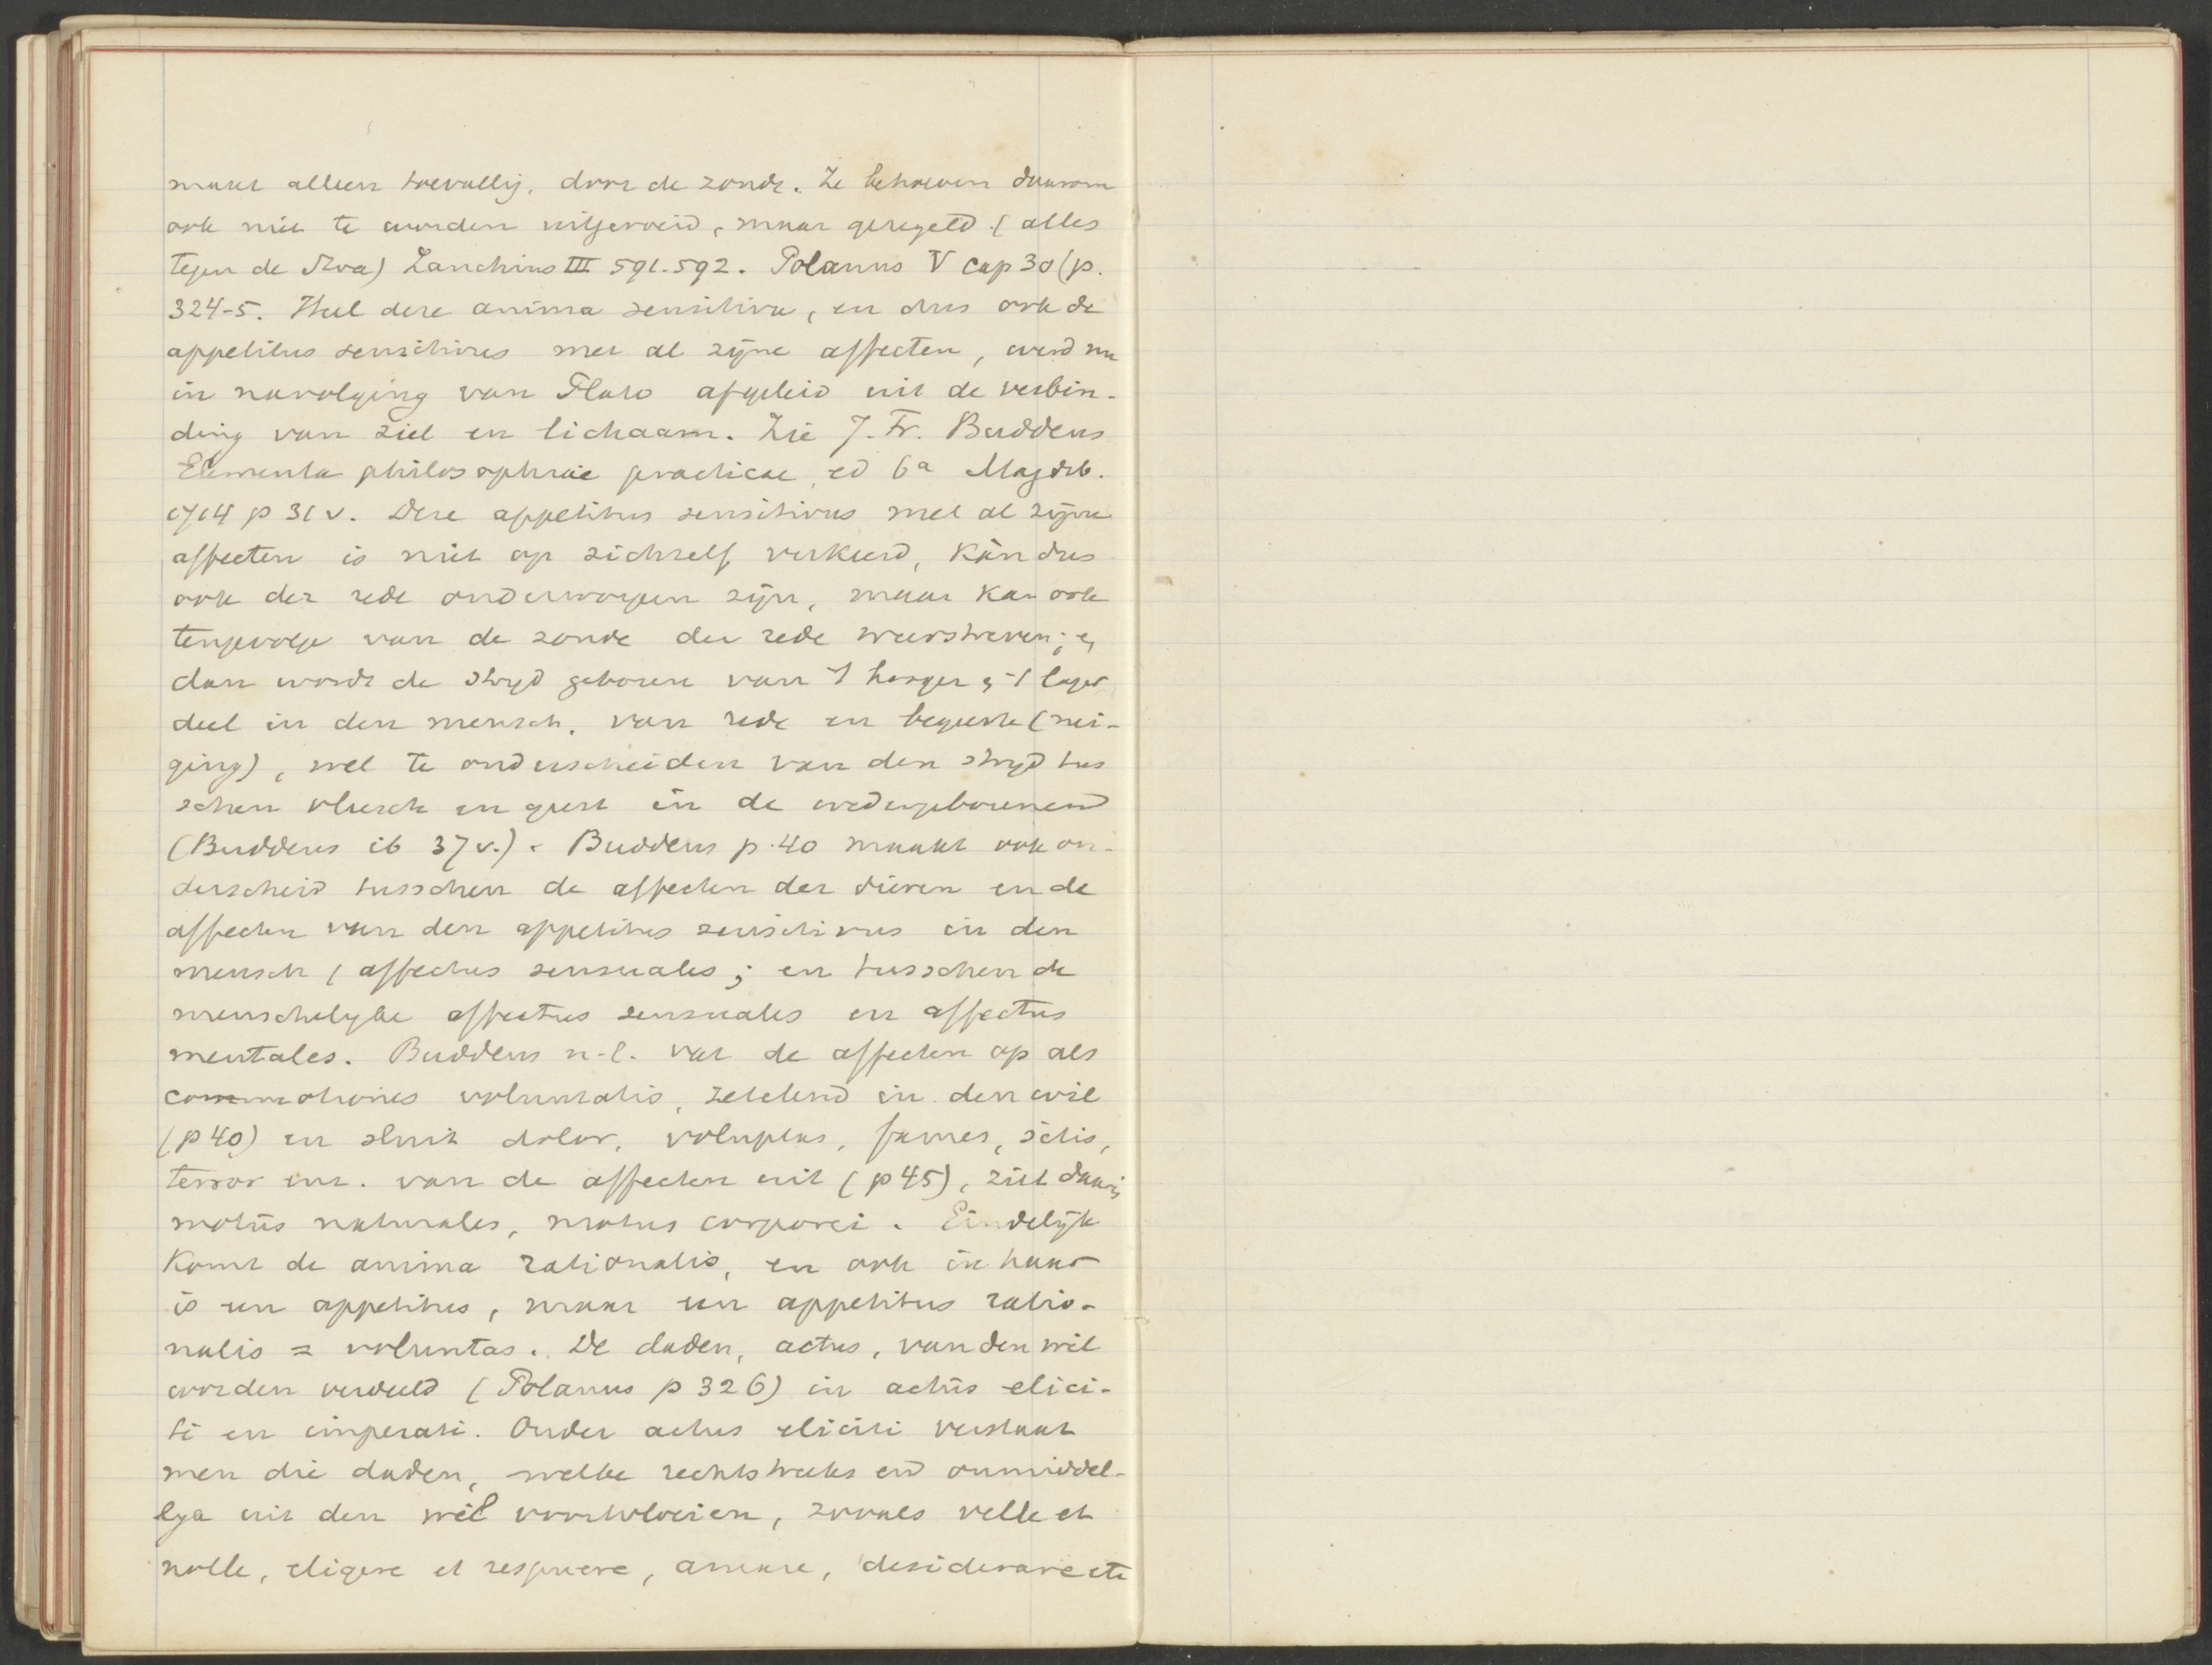 maar alleen toevallig, door de zonde. Ze behoeven daarom
ook niet te worden uitgeroeid, maar geregeld (alles
tegen de Stoa) Zanchius III 591.592. Polanus V cap 30 (p.
324-5. Heel deze anima sensitiva, en dus ook de
appetitus sensitivus met al zijne affecten, werd nu
in navolging van Plato afgeleid uit de verbin-
ding van ziel en lichaam. Zie J. Fr. Buddeus
Elementa philosophiae practicae, ed 6a Magdeb.
1714 p 31 v. Deze appetitus sensitivus met al zijne
affecten is niet op zichzelf verkeerd, kàn dus
ook der rede onderworpen zijn, maar kan ook
tengevolge van de zonde der rede weerstreven; en
dan wordt de strijd geboren van 't hooger en 't lager
deel in den mensch, van rede en begeerte (nei-
ging), wel te onderscheiden van den strijd tus
schen vleesch en geest in de wedergeborenen
(Buddeus ib 37 v.). Buddeus p. 40 maakt ook on-
derscheid tusschen de affecten der dieren en de
affecten van den appetitus sensitivus in den
mensch (affectus sensuales; en tusschen de
menschelijke affectus sensuales en affectus
mentales. Buddeus n.l. vat de affecten op als
commotiones voluntatis, zetelend in den wil
(p 40) en sluit dolor, voluptas, fames, sitis,
terror enz. van de affecten uit (p 45), ziet daarin
motus naturales, motus corporei. Eindelijk
komt de anima rationalis, en ook in haar
is een appetitus, maar een appetitus ratio-
nalis = voluntas. De daden, actus, van den wil
worden verdeeld (Polanus p 326) in actus elici-
ti en imperati. Onder actus eliciti verstaat
men die daden, welke rechtstreeks en onmiddel-
lijk uit den wil voortvloeien, zooals velle et
nolle, eligere et respuere, amare, desiderare etc